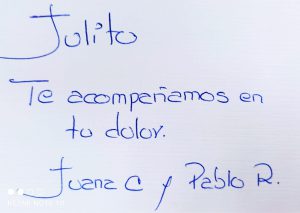 Julito
Te acompañamos en
tu dolor.
Juana C y Pablo R.